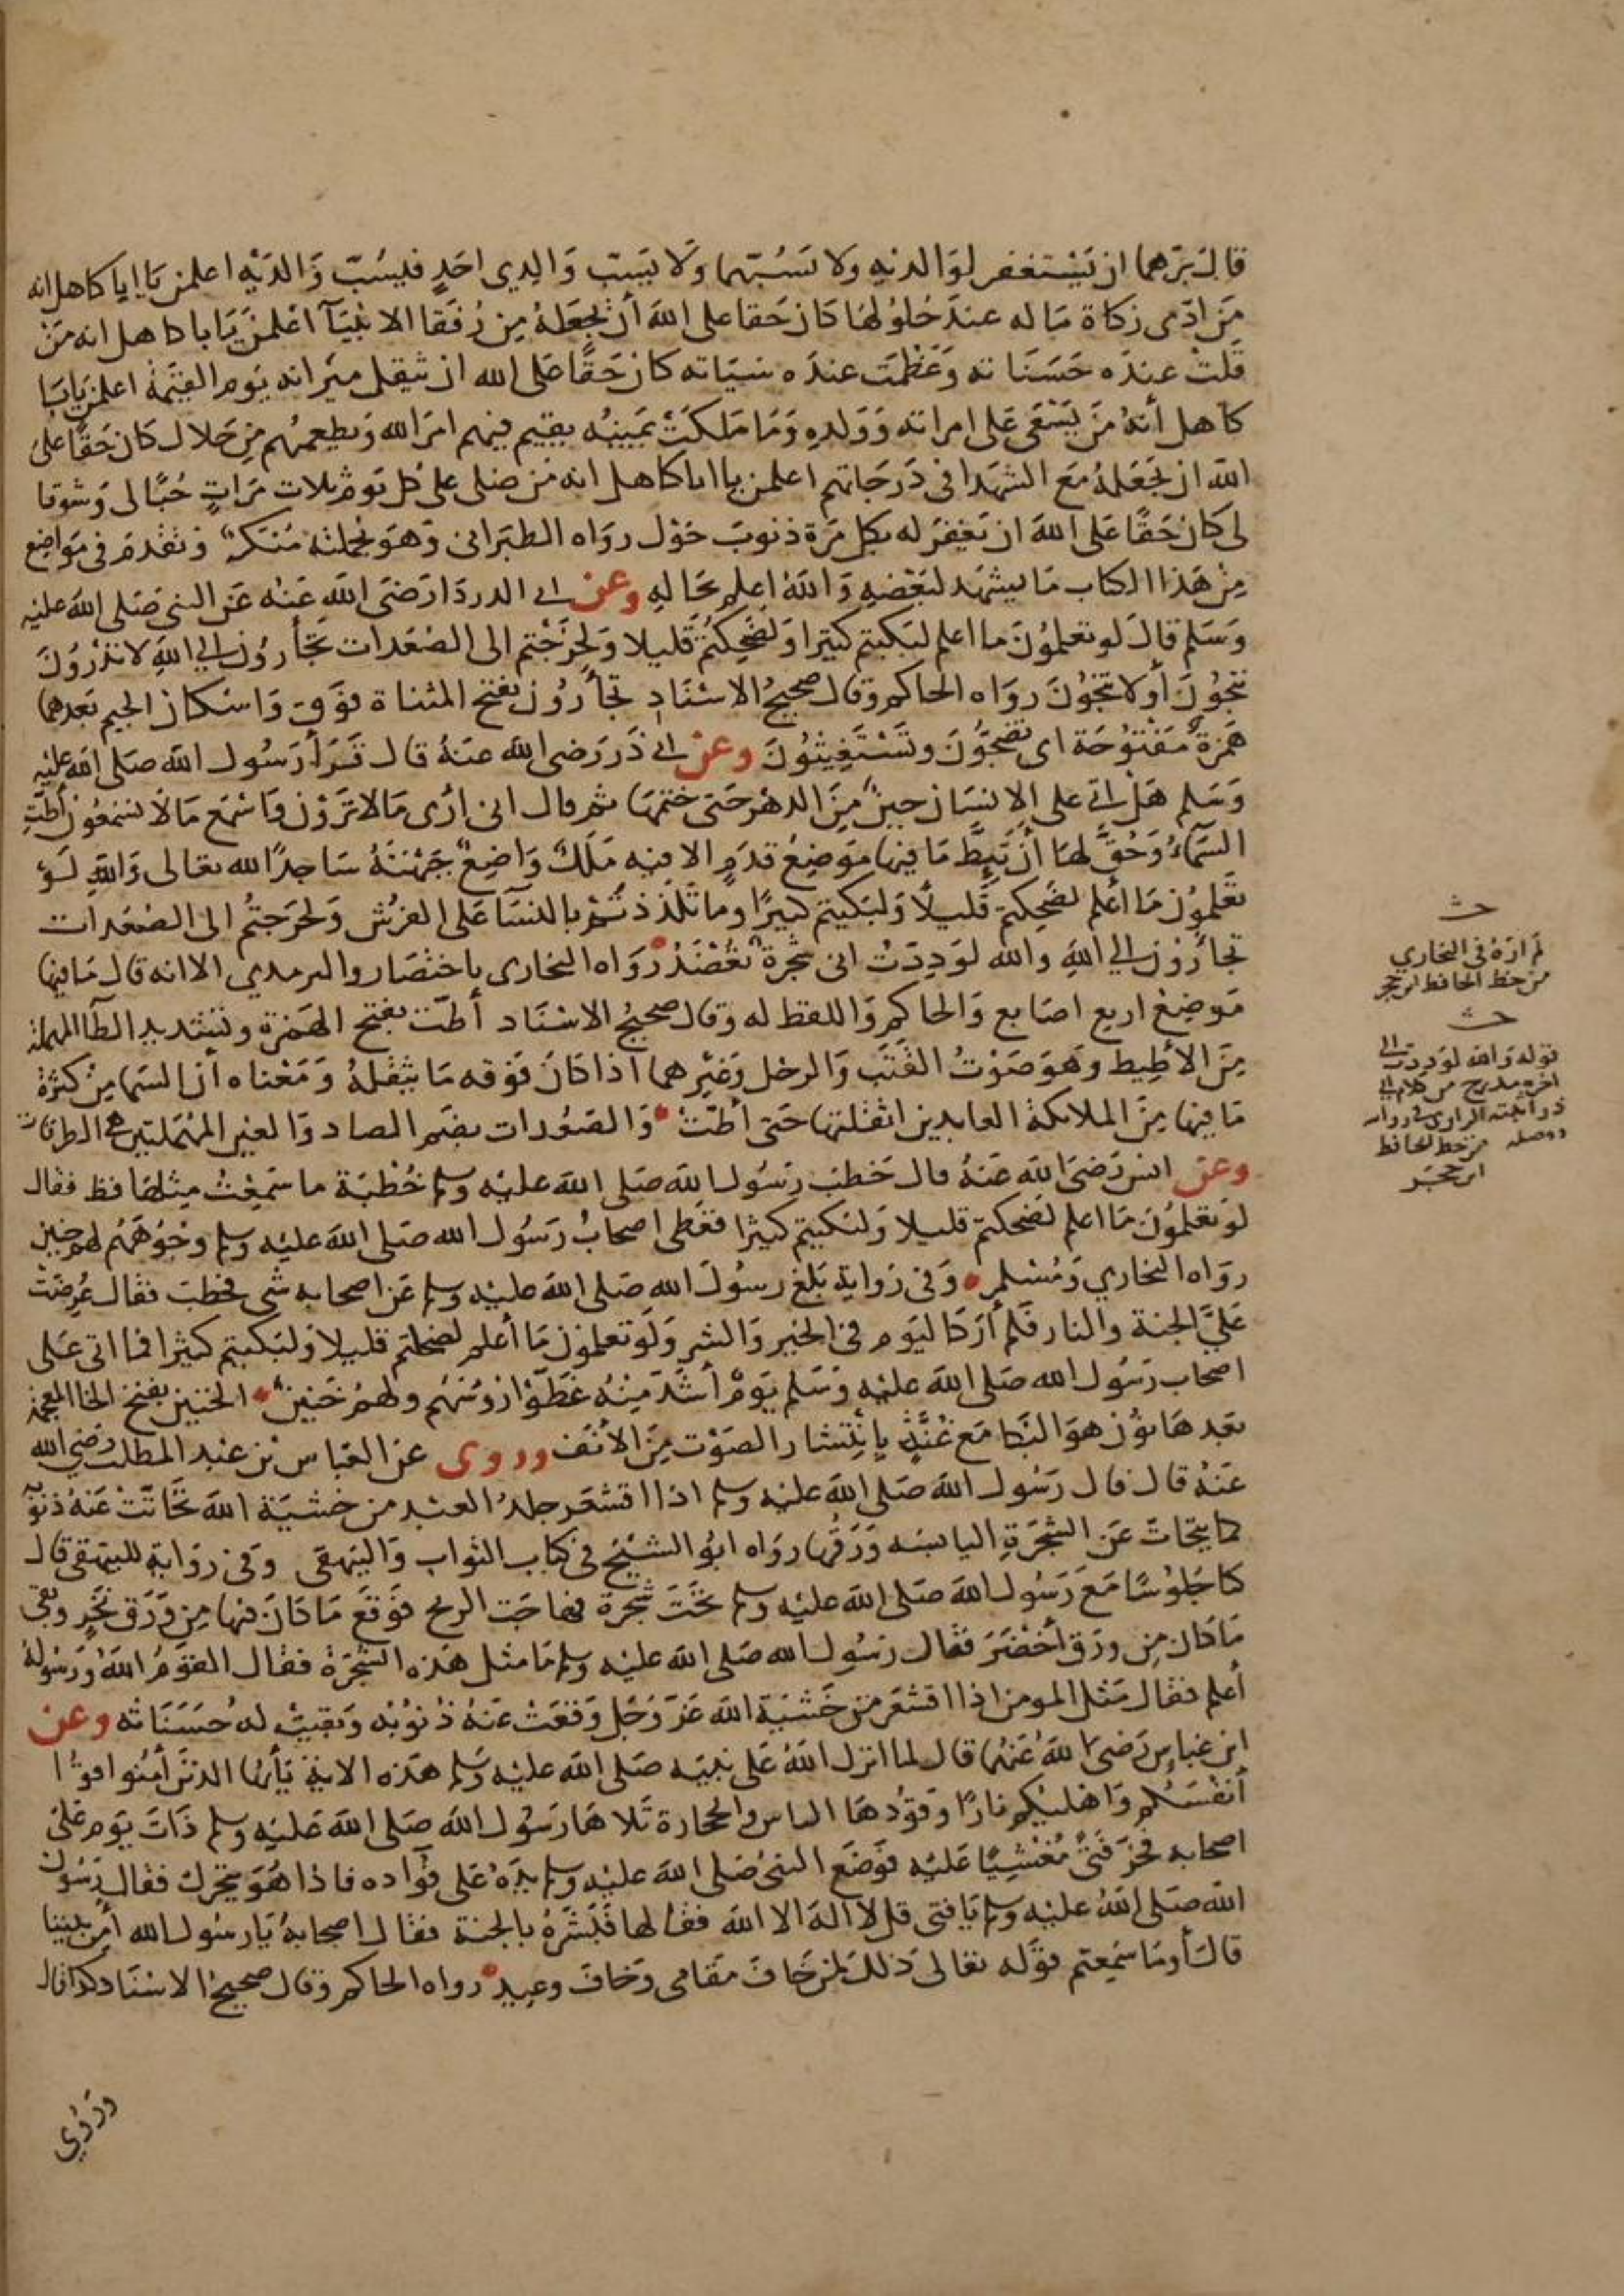 قال برهما ان يستغفر لوالديه ولا تسبهما ولا يسب والدي احد فيسب والديه اعلمن يا ابا كاهل انه
من ادى زكاة ماله عند حلولها كان حقا على الله أن يجعله من رفقا الانبيآ اعلمن يا ابا كاهل انه من
قلت عنده حسناته وعظمت عنده سياته كان حقا على الله ان يثقل ميزانه يوم القيمة اعلمن يابا
كاهل أنه من يسعى على امراته وولده وما ملكت يمينه يقيم فيهم امر الله ويطعمهم من حلال كان حقا على
الله ان يجعله مع الشهدا في درجاتهم اعلمن يا ابا كاهل انه من صلى على كل يوم ثلاث مرات حبا لى وشوقا
لى كان حقا على الله ان يغفر له بكل مرة ذنوب حول رواه الطبرانى وهو بجملته منكر وتقدم في مواضع
من هذا الكتاب ما يشهد لبعضه والله اعلم بحاله وعن ابي الدردا رضى الله عنه عن النبي صلى الله عليه
وسلم قال لو تعلمون ما اعلم لبكيتم كثيرا ولضحكتم قليلا ولخرجتم الى الصعدات تجأرون إلي الله لا تدرون
تنجون أو لا تنجون رواه الحاكم وقال صحيح الاسناد تجأرون بفتح المثناة فوق واسكان الجيم بعدهما
همزة مفتوحة اى تضجون وتستغيثون وعن ابي ذر رضى الله عنه قال قرأ رسول الله صلى الله عليه
وسلم هل اتى على الانسان حين من الدهر حتى ختمها ثم قال انى أرى مالا ترون واسمع مالا تسمعون أطت
السمآء وحق لها أن تيط ما فيها موضع قدم الا فيه ملك واضع جبهته ساجدا لله تعالى والله لو
تعلمون ما أعلم لضحكتم قليلا ولبكيتم كثيرا وما تلذذتم بالنسآ على الفرش ولخرجتم الى الصعدات
تجأرون الي الله والله لوددت انى شجرة تعضد رواه البخارى باختصار والترمدي الا انه قال ما فيها
موضع اربع اصابع والحاكم واللفظ له وقال صحيح الاسناد أطت بفتح الهمزة وتشديد الطآ المهملة
من الأطيط وهو صوت القتب والرحل وغيرهما اذا كان فوقه ما يثقله ومعناه أن السما من كثرة
ما فيها من الملائكة العابدين اثقلتها حتى أطت والصعدات بضم الصاد والعين المهملتين هى الطرقات
وعن انس رضى الله عنه قال خطب رسول الله صلى الله عليه وسلم خطبة ما سمعت مثلها قط فقال
لو تعلمون ما اعلم لضحكتم قليلا ولبكيتم كثيرا فغطى اصحاب رسول الله صلى الله عليه وسلم وجوههم لهم خنين
رواه البخاري ومسلم وفى رواية بلغ رسول الله صلى الله عليه وسلم عن اصحابه شى فخطب فقال عرضت
علي الجنة والنار فلم أر كاليوم في الخير والشر ولو تعلمون ما أعلم لضحكتم قليلا ولبكيتم كثيرا فما اتى على
اصحاب رسول الله صلى الله عليه وسلم يوم أشد منه غطوا روسهم ولهم خنين الخنين بفتح الخا المعجمة
بعدها نون هو البكا مع غنة بإنتشار الصوت من الأنف وروى عن العباس بن عبد المطلب رضي الله
عنه قال قال رسول الله صلى الله عليه وسلم اذا اقشعر جلد العبد من خشية الله تحاتت عنه ذنوبه
كما يتحات عن الشجرة اليابسه ورقها رواه ابو الشيخ في كتاب الثواب والبيهقى وفى رواية للبيهقى قال
كنا جلوسا مع رسول الله صلى الله عليه وسلم تحت شجرة فهاجت الريح فوقع ما كان فيها من ورق نخر وبقى
ما كان من ورق أخضر فقال رسول الله صلى الله عليه وسلم ما مثل هذه الشجرة فقال القوم الله ورسوله
أعلم فقال مثل المومن اذا اقشعر من خشية الله عز وجل وقعت عنه ذنوبه وبقيت له حسناته وعن
ابن عباس رضى الله عنهما قال لما انزل الله على نبيه صلى الله عليه وسلم هذه الاية يأيها الذين أمنوا قوا
أنفسكم واهليكم نارا وقودها الناس والحجارة تلاها رسول الله صلى الله عليه وسلم ذات يوم على
اصحابه فخر فتى مغشيا عليه فوضع النبى صلى الله عليه وسلم يده على فوآده فاذا هو يتحرك فقال رسول
الله صلى الله عليه وسلم يا فتى قل لا اله الا الله فقالها فبشره بالجنة فقال اصحابه يا رسول الله أمن بيننا
قال أوما سمعتم قوله تعالى ذلك لمن خاف مقامى وخاف وعيد رواه الحاكم وقال صحيح الاسناد كذا قال
وروي
حـ
لم اره فى البخاري
من خط الحافظ ابن حجر
حـ
قوله والله لوددت الى
اخره مدرج من كلام ابي
ذر
من خط الحافظ
ابن حجر